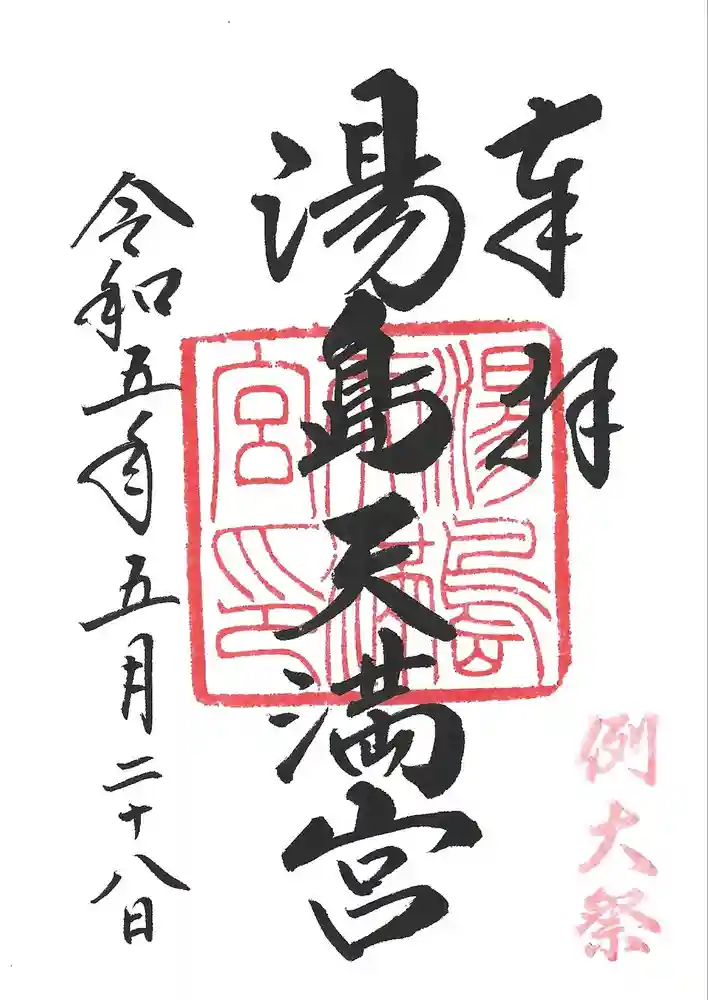 奉拝
湯島天満宮
湯島天満宮印
例大祭
令和五年五月二十八日